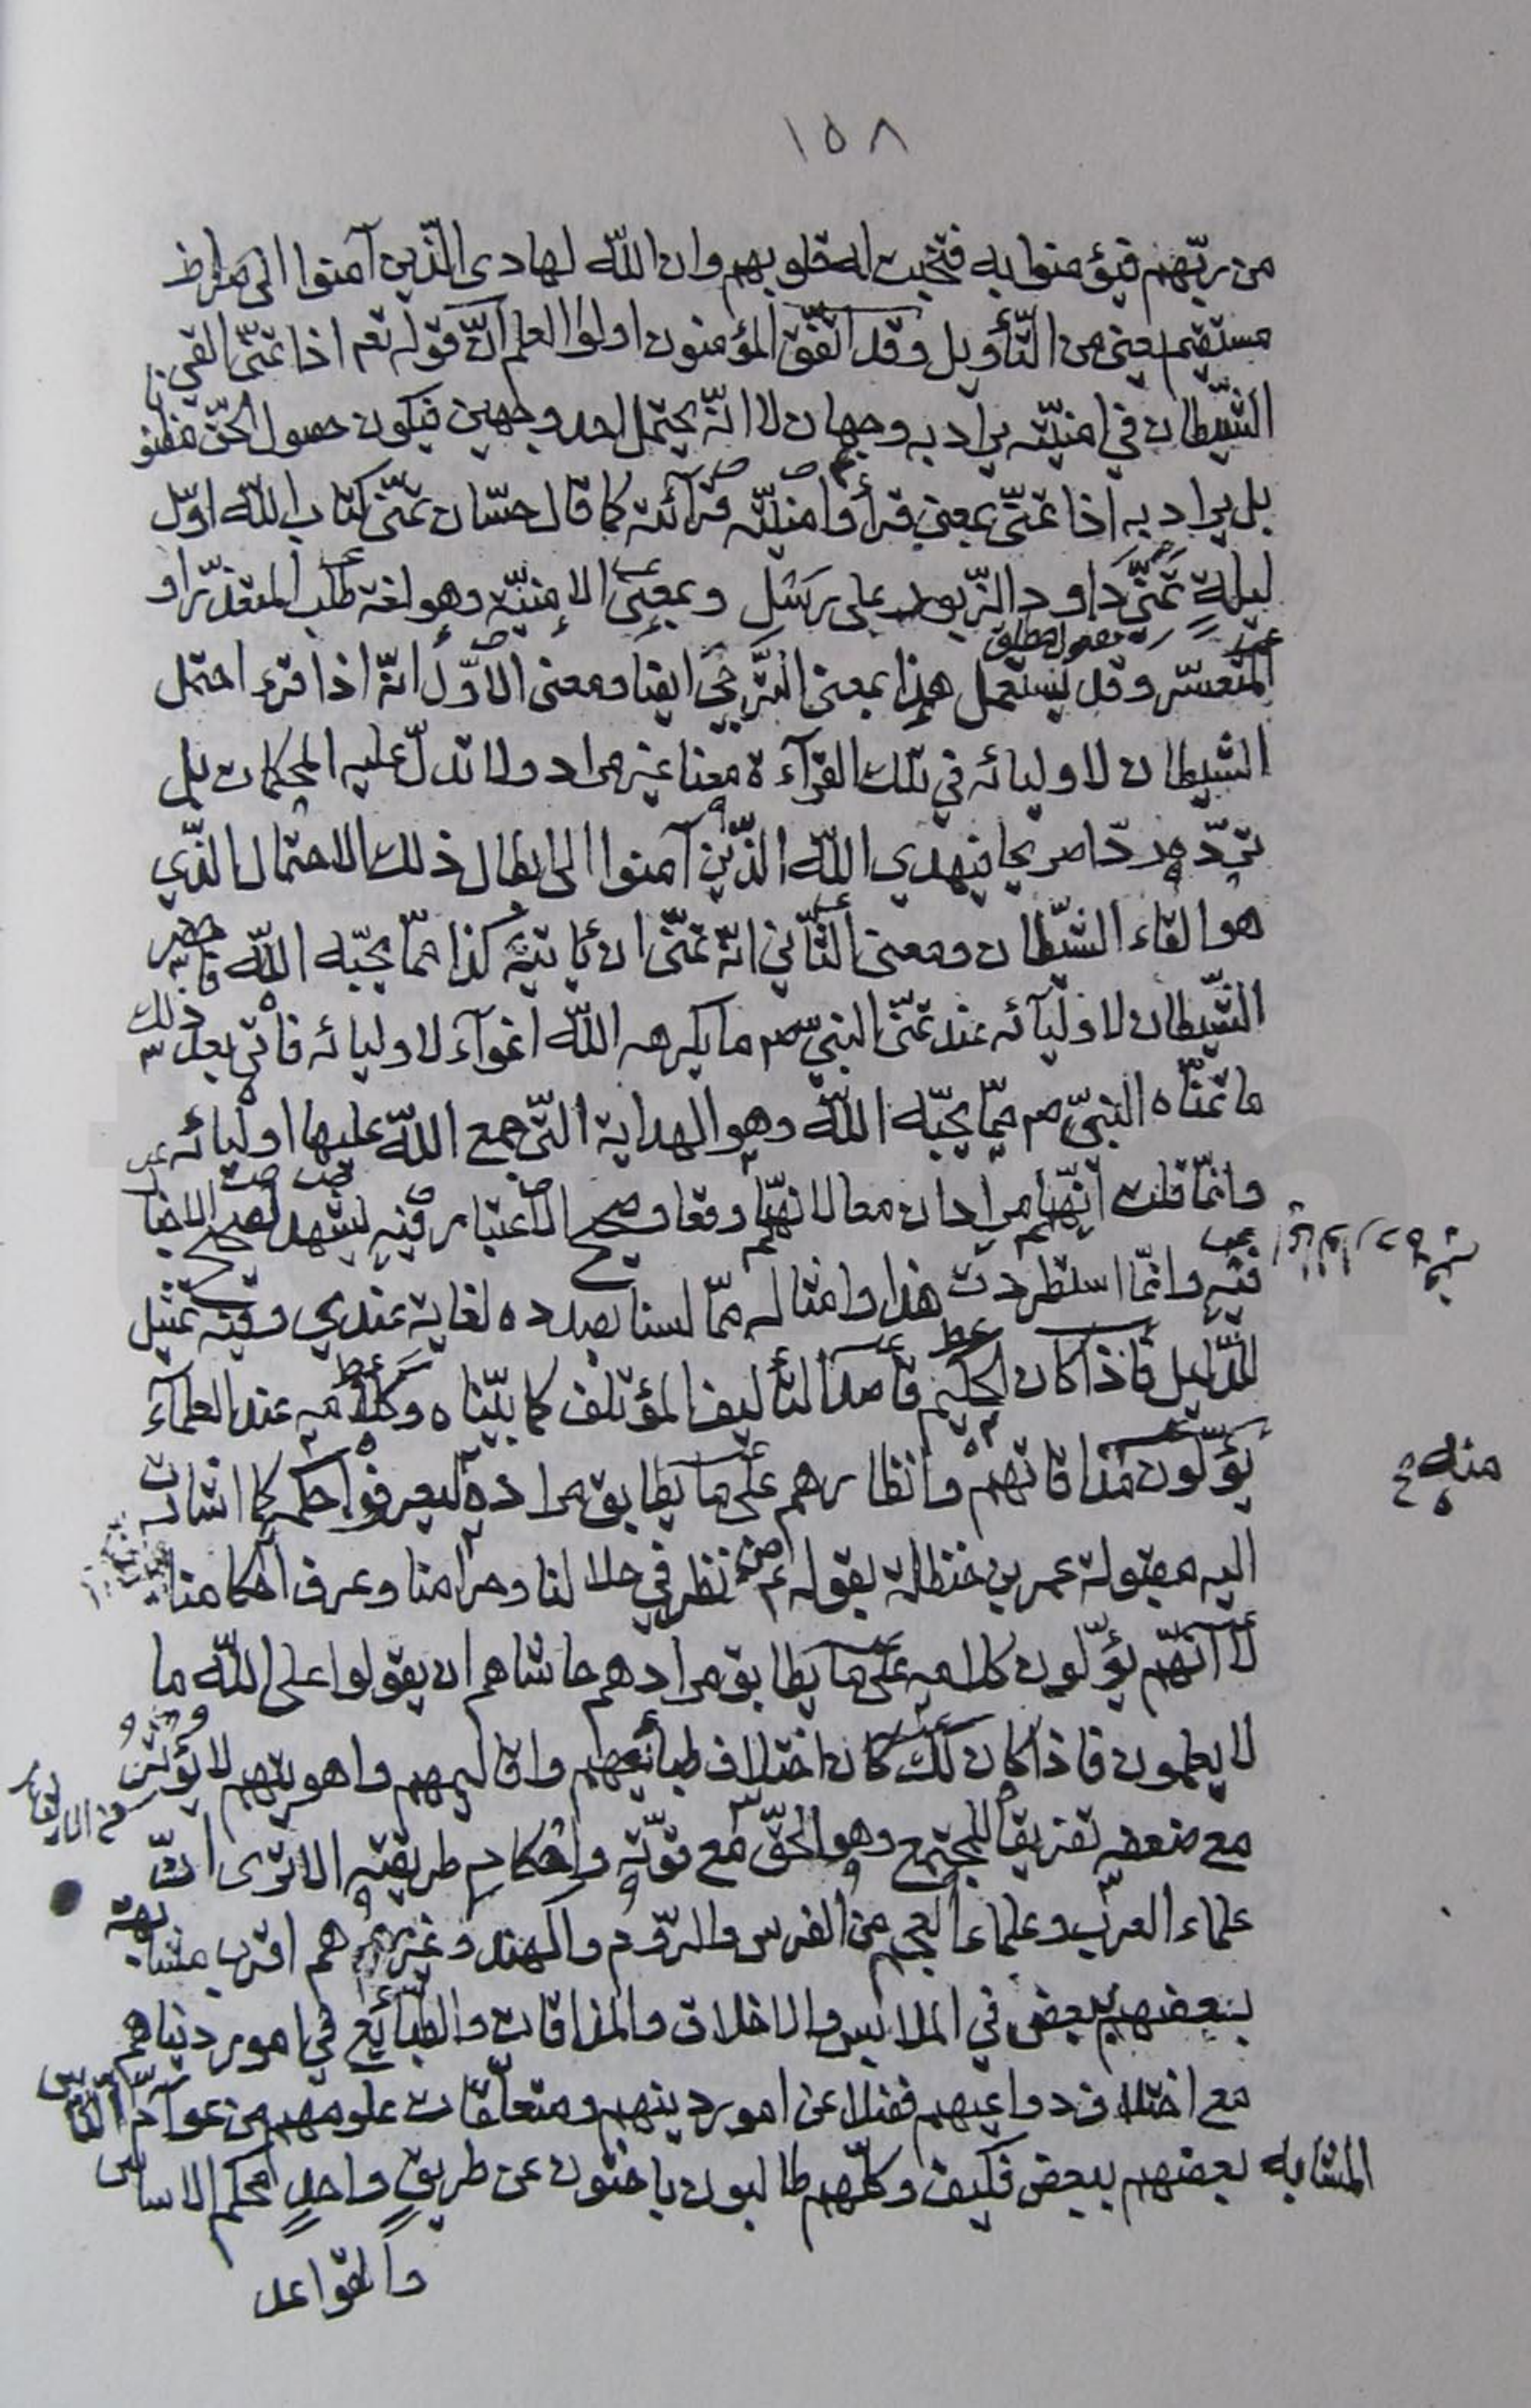 ١٥٨
من ربّهم فيؤمنوا به فتخبت له قلوبهم وان اللّه لهادى الّذين آمنوا الى صراط
مستقيم يعنى من التّأويل وقد اتّفق المؤمنون اولوا العلم انّ قوله تعم اذا تمنّى القى
الشّيطان في امنيّته يراد به وجهان لا انّه يحتمل احد وجهين فيكون حصول الحقّ مظنو نا
بل يراد به اذا تمنّى بمعنى قرأ وامنيّته قرآئته كما قال حسّان تمنّى كتاب اللّه اوّل
ليلةٍ تمنّى داود الزّبور على رسل وبمعنى الامنيّة وهو لغة طلب المتعذّر او
المتعسّر وقد يستعمل هذا بمعنى التّرجّى ايضا ومعنى الاوّل انّه اذا قرء احتمل
الشيطان لاوليائه في تلك القرآءة معنا غير مراد ولا تدلّ عليه المحكمات بل
تردّه ردّا صريحا فيهدي اللّه الّذين آمنوا الى ابطال ذلك الاحتمال الّذي
هو القاء الشّيطان ومعنى الثّاني انّه تمنّى ان يأتيه كذا ممّا يحبّه اللّه
الشّيطان لاوليآئه عند تمنّى النبيّ صم ما يكرهه اللّه اغوآء لاوليائه فاتى بعد ذلك
ما تمنّاه النبيّ صم ممّا يحبّه اللّه وهو الهداية الّتى جمع اللّه عليها اوليائه
وانّما قلت انّهما مرادان معا لانّهما وقعا وصحيح الاعتبار فيه يشهد لصحيح الاخبار
فيه وانّما استطردت هذا وامثاله ممّا لسنا بصدده لغاية عندي وفيه تمثيل
للدّليل فاذا كان الحكيم قاصدا لتأليف المؤتلف كما بيّنّاه وكلامه عند العلمآء
يؤلون مذاقاتهم وانظارهم على ما يطابق مراده ليعرفوا حكمه كما اشارت
اليه مقبولة عمر بن حنظلة بقوله عم من نظر في حلالنا وحرامنا وعرف احكامنا
لا انّهم يؤلون كلامه على ما يطابق مرادهم حاشاهم ان يقولوا على اللّه ما
لا يعلمون فاذا كان كذلك كان اختلاف طبائعهم واقاليمهم واهويتهم لا يؤثّر
مع ضعفه تفريقا للمجتمع وهو الحقّ مع قوّته واحكام طريقته الا ترى انّ
علماء العرب وعلماء العجم من الفرس والرّوم والهند وغيرهم هم اقرب مشابهة
بعضهم ببعض في الملابس والاخلاق والمذاقات والطّبائع في امور دنياهم
مع اختلاف دواعيهم فضلا عن امور دينهم ومتعلّقات علومهم من عوآمّ النّاس
المتشابه بعضهم ببعض فكيف وكلّهم طالبون باحثون عن طريقٍ واحدٍ محكم الاساس
والقواعد